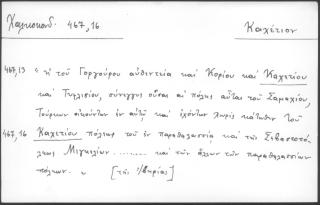 Χαλκοκονδ. 467,16
Καχέτιον
467,13 « ἡ τοῦ Γοργούρου αὐθεντεία καὶ Κορίου καὶ Καχετίου
καὶ Τυφλισίου, σύνεγγυς οὖσαι αἱ πόλεις αὗται τοῦ Σαμαχίου,
Τούρκων οἰκούντων ἐν αὐτῇ καὶ ἐχόντων χωρὶς κάτωθεν τοῦ
467,16 Καχετίου πόλεων τοῦ ἐν παραθαλασσίᾳ καὶ τῆς Σεβαστοπό-
λεως Μιγκελίων .......... καὶ τῶν ἄλλων τῶν παραθαλασσίων
πόλεων. » [τῆς Ἰβηρίας]